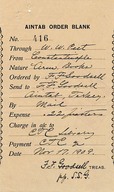 AINTAB ORDER BLANK
No. 416
Through W. W. Peet
From Constantinople
Article
Ordered by F. F. Goodsell
Send to F. F. Goodsell
Aintab, Turkey
By Mail
Expense piasters
Charge in a/c to
Library
Payment
Date Nov. 17, 1909
F. F. Goodsell TREAS.